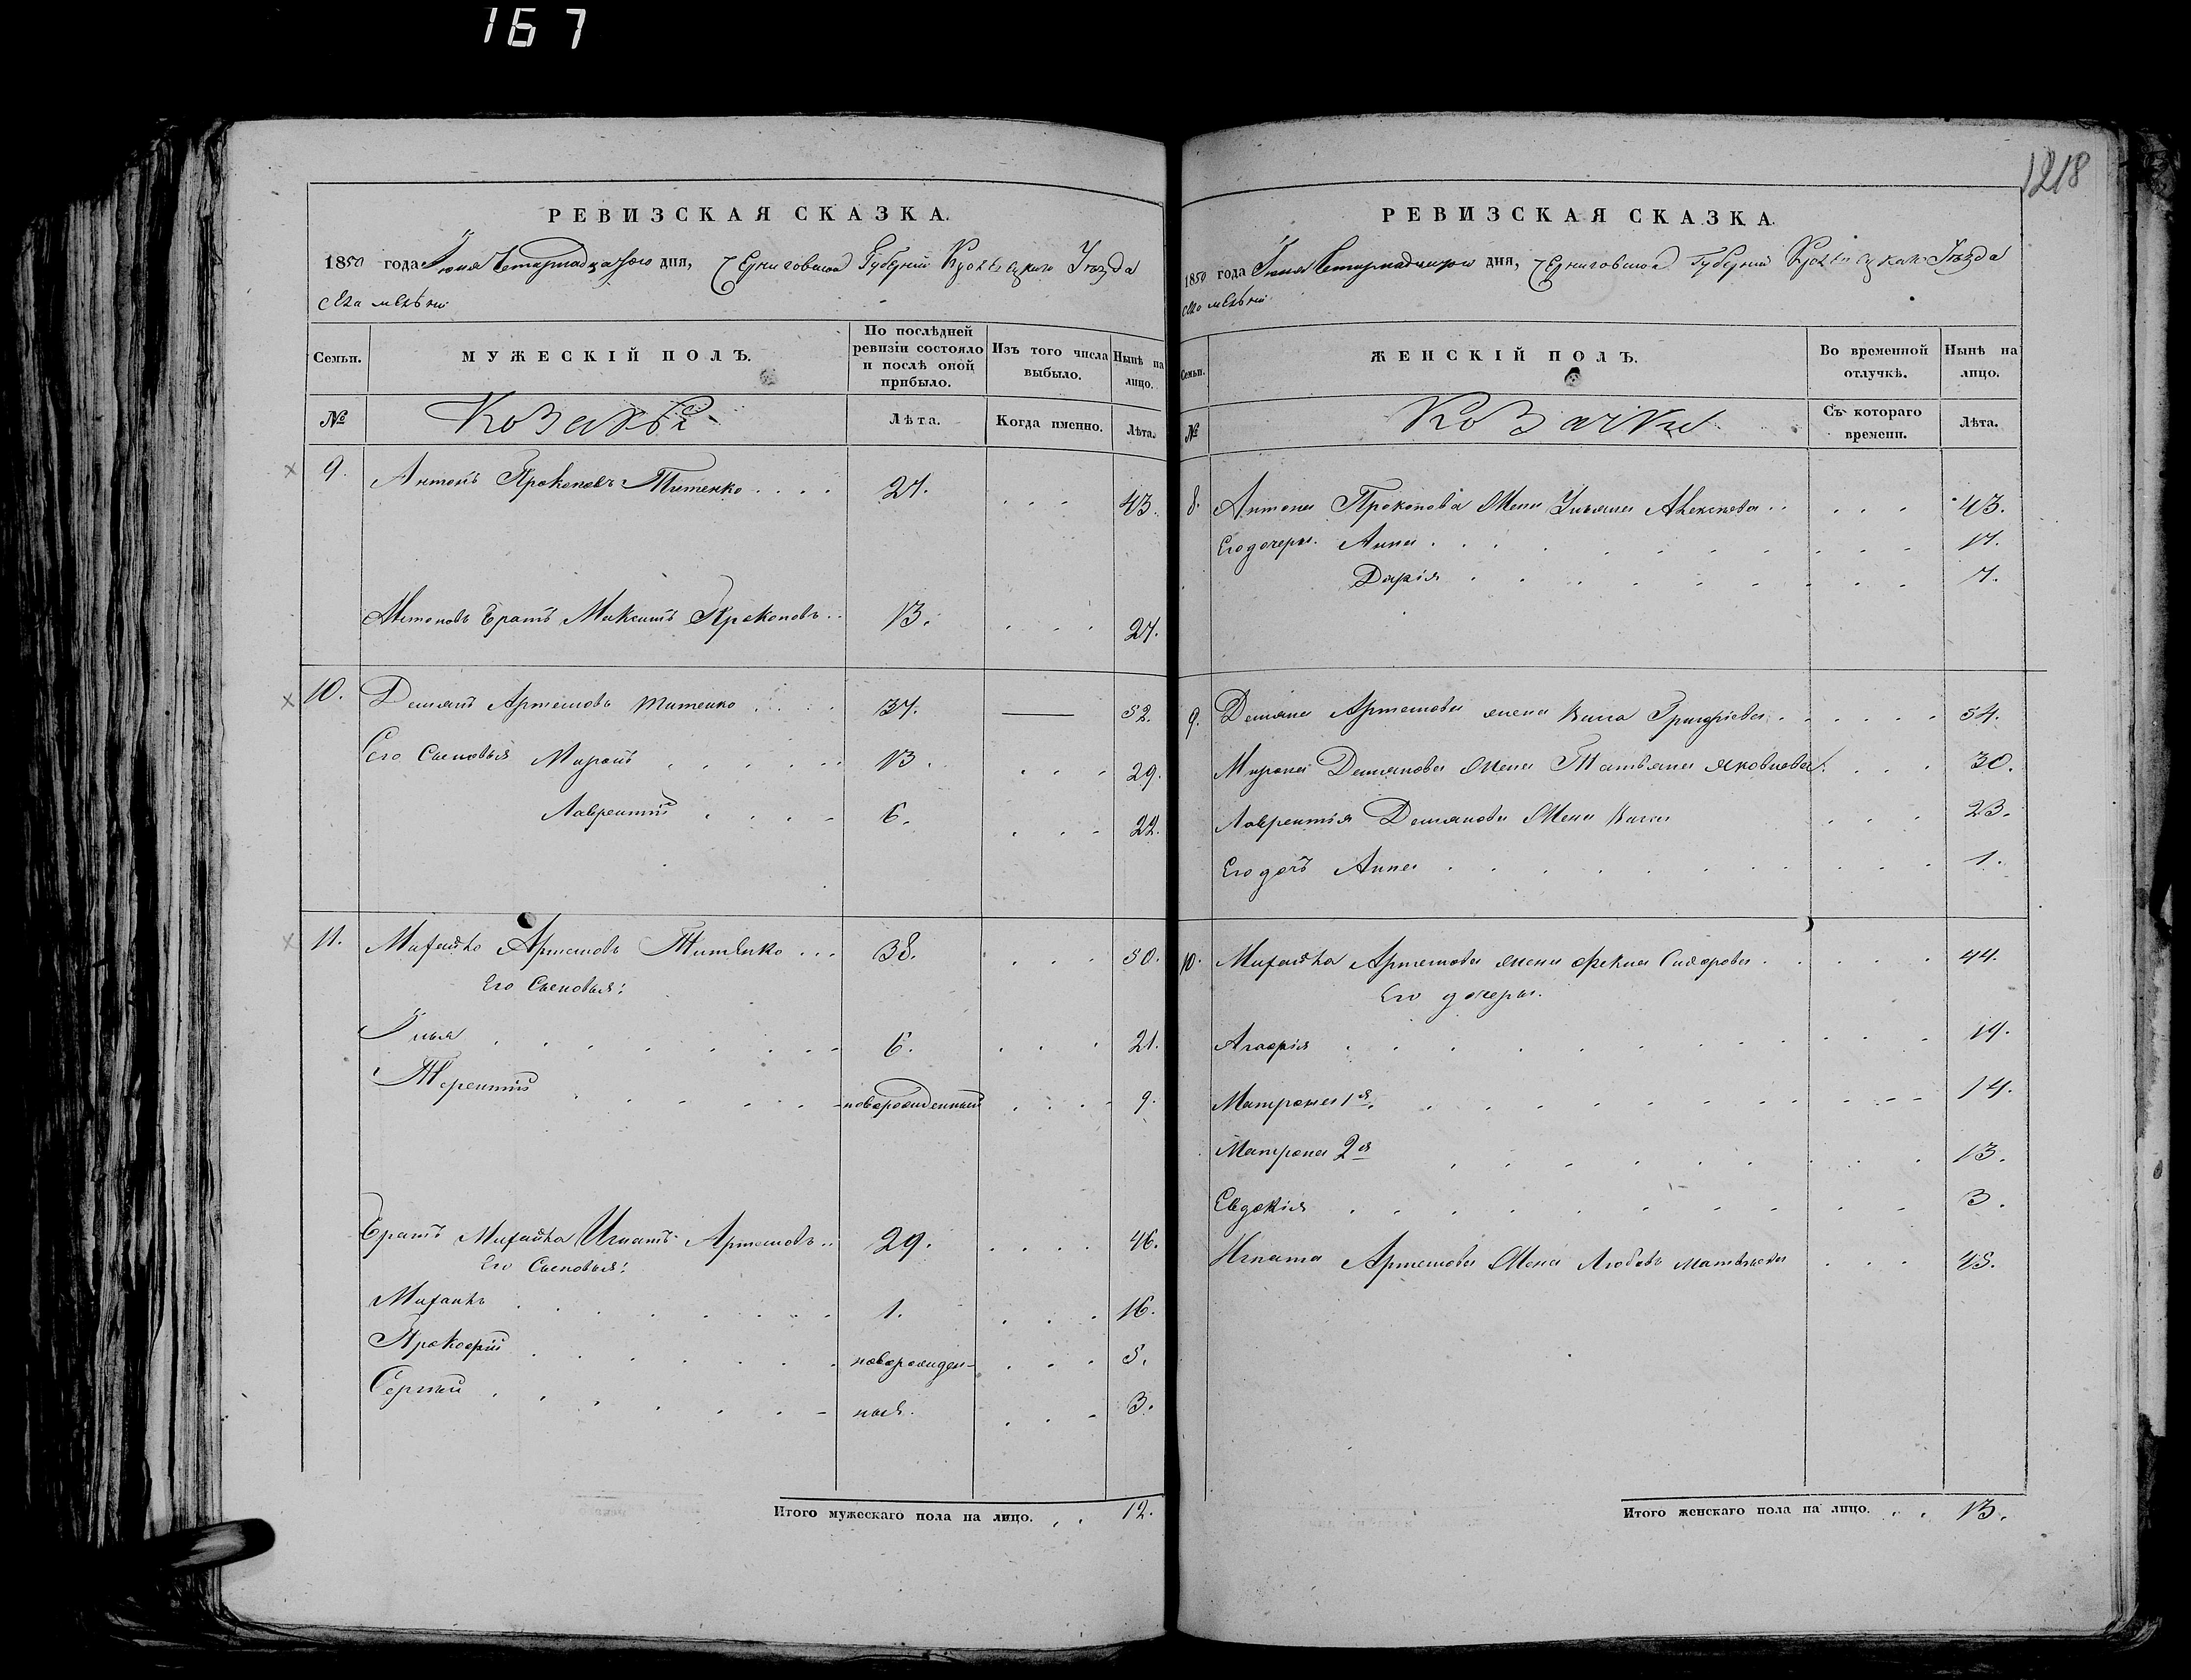 167
1218
РЕВИЗСКАЯ СКАЗКА.
1850 года Июня Четырнадцатого дня, Черниговской Губерніи Кролевецкаго Уѣзда
села
МУЖЕСКІЙ ПОЛЪ.
Семьи.
По послѣдней ревизіи состояло и послѣ оной прибыло.
Изъ того числа выбыло.
Нынѣ на лицо.
№
Козаки
Лѣта.
Когда именно.
Лѣта.
9. Антонъ Прокоповъ Титенко 27. 43.
Антоновъ братъ Максимъ Прокоповъ 13. 27.
10. Демянъ Артемовъ Титенко 37. 52.
Его Сыновья Миронъ 13. 29.
Лаврентій 6. 22.
11. Михайло Артемовъ Титенко 38. 50.
Его Сыновья:
Илья 6. 21.
Терентій новорожденный 9.
Братъ Михайла Игнатъ Артемовъ 29. 46.
Его Сыновья:
Михаилъ 1. 16.
Прокофій новорожден- 5.
Сергѣй ные. 3.
Итого мужескаго пола на лицо. 12.
РЕВИЗСКАЯ СКАЗКА.
1850 года Июня Четырнадцатого дня, Черниговской Губерніи Кролевецкаго Уѣзда
села
Семьи.
ЖЕНСКІЙ ПОЛЪ.
Во временной отлучкѣ.
Нынѣ на лицо.
№
Козачки
Съ котораго времени.
Лѣта.
8. Антона Прокопова Жена Ульяна Алексѣева 43.
Его дочери. Анна 17.
Дарія 7.
9. Демяна Артемова жена Васса Григорьева 54.
Мирона Демянова Жена Татьяна Яковлева 30.
Лаврентія Демянова Жена Васса 23.
Его дочь Анна 1.
10. Михайла Артемова жена Фекла Сидорова 44.
Его дочери.
Агафія 19.
Матрона 1я. 14.
Матрона 2я 13.
Евдокія 3.
Игната Артемова Жена Любовь Матвѣева 45.
Итого женскаго пола на лицо. 13.